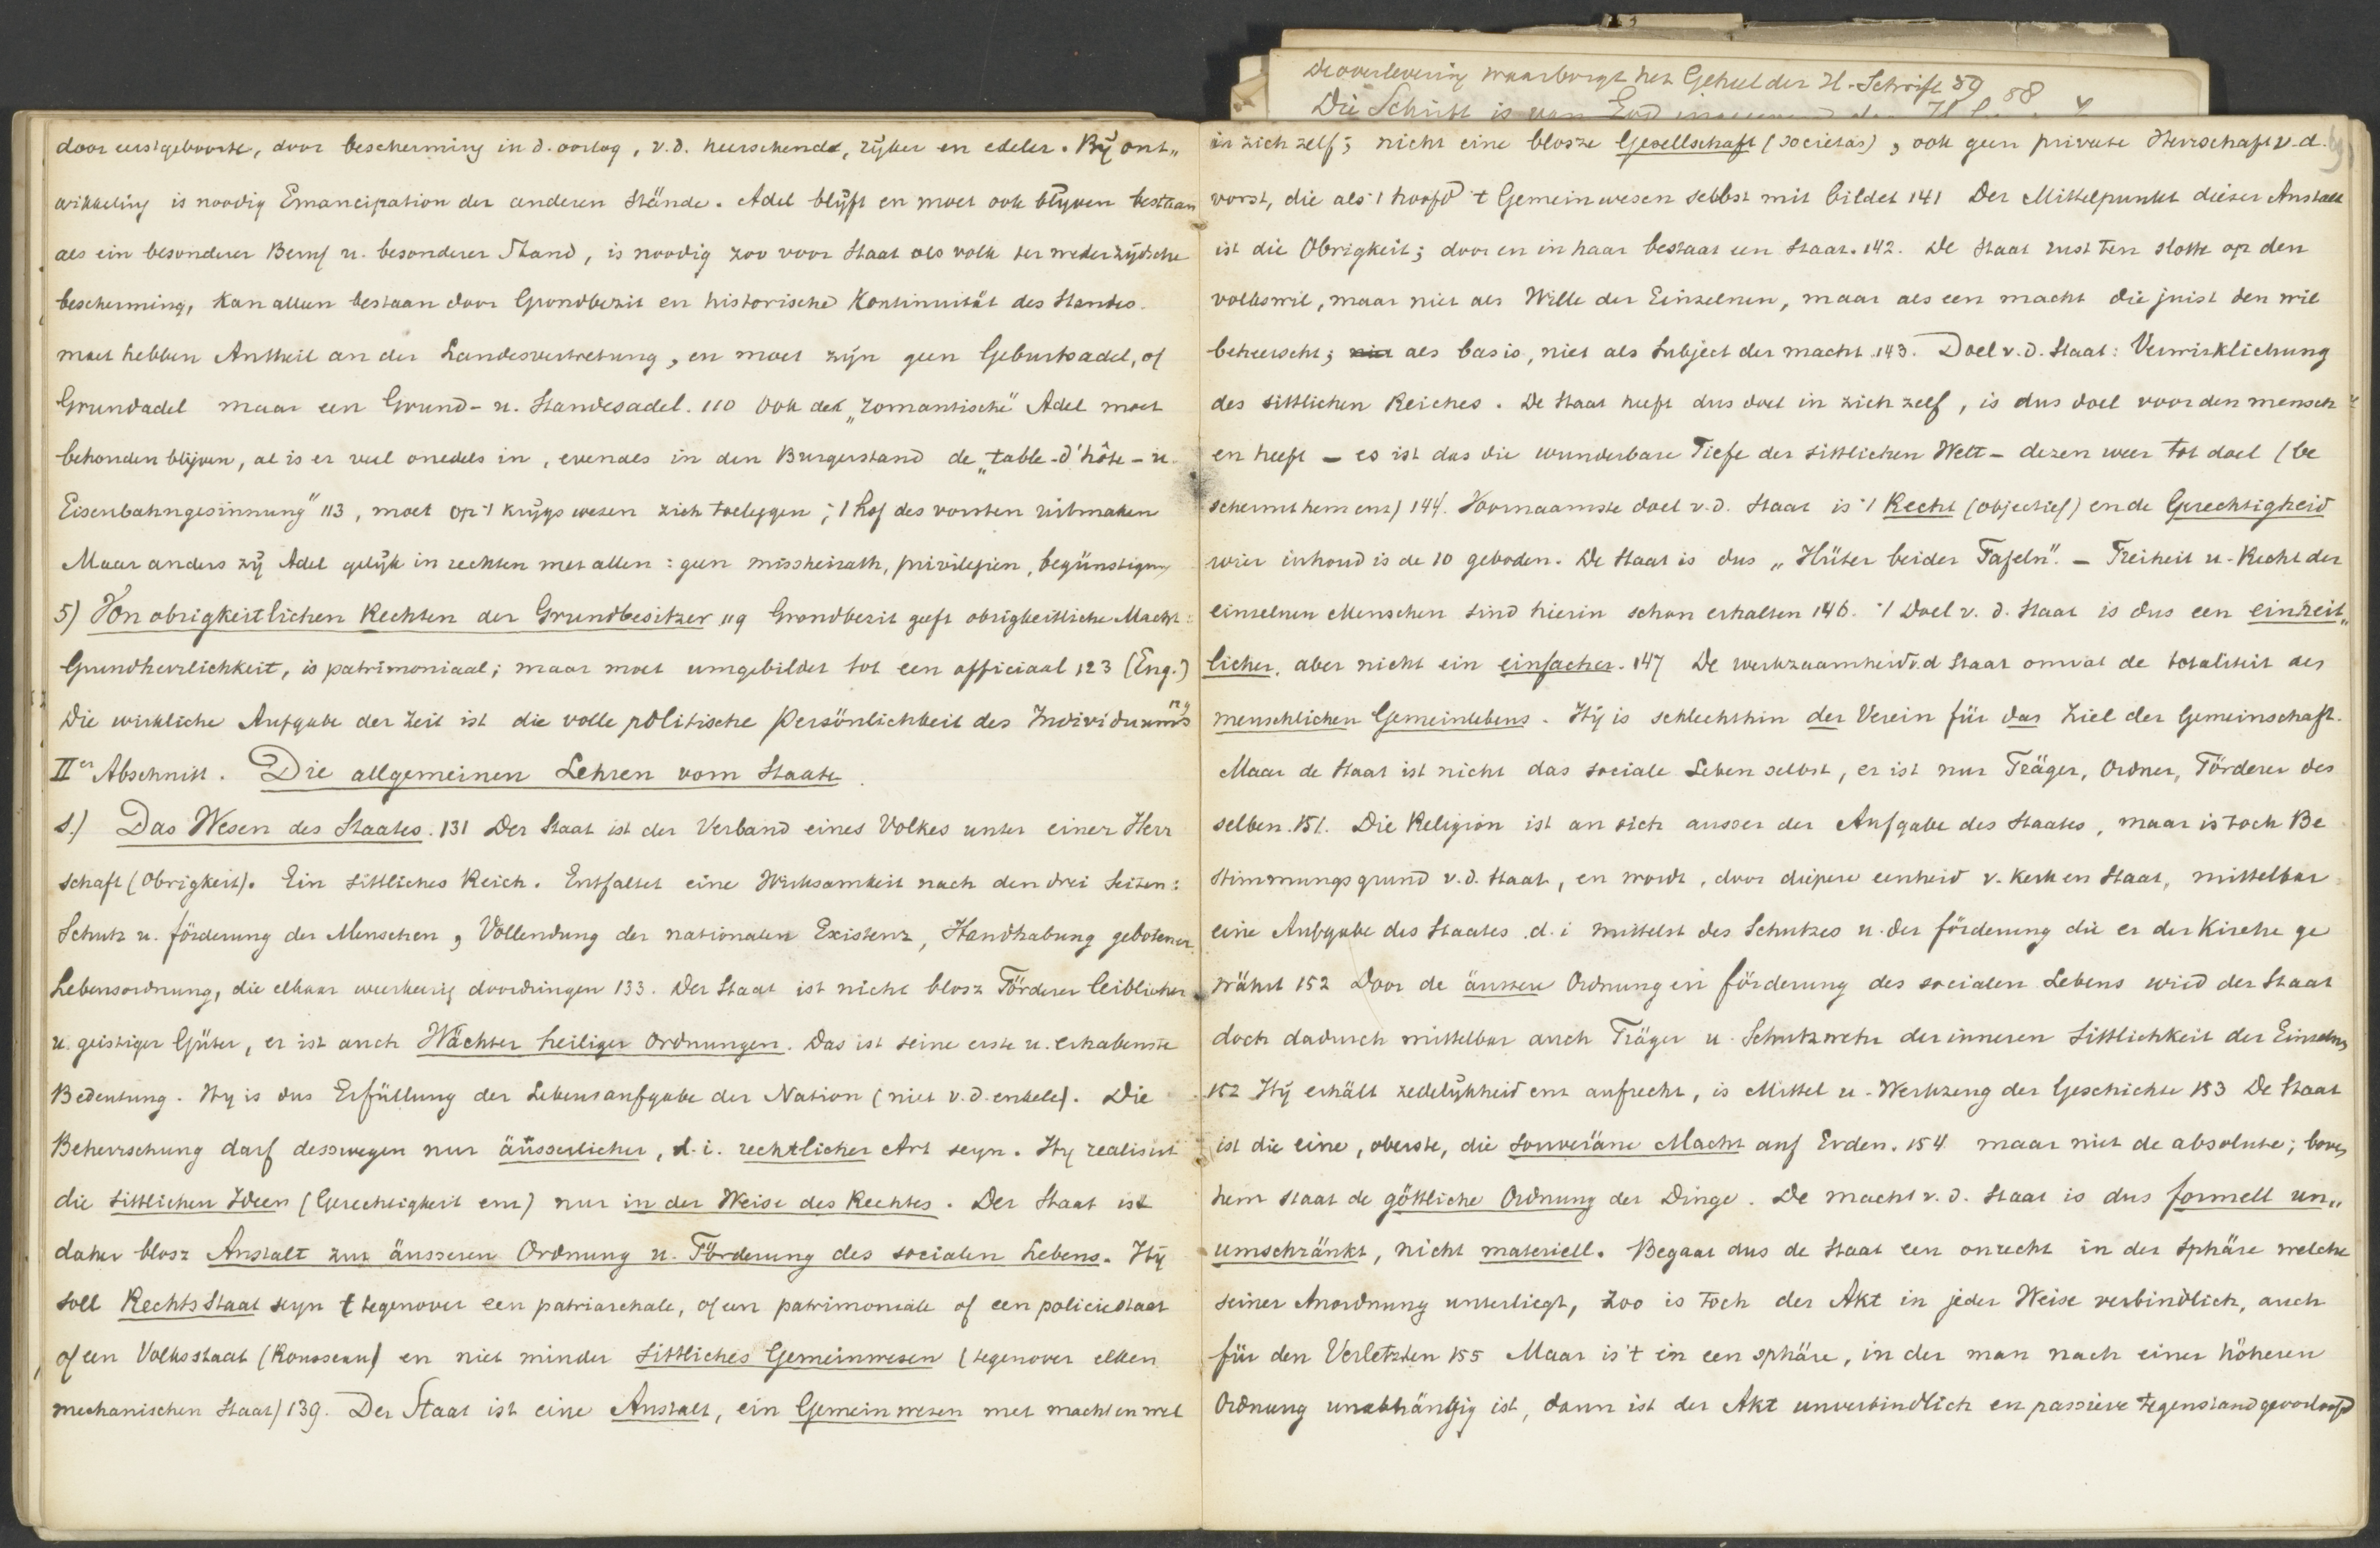 De overlevering waarborgt het Geheel der H. Schrift 59 88
Die Schrift is van God
door eerstgeboorte, door bescherming in d. oorlog, v.d. heerschende, rijker en edeler. Bij ont„
wikkeling is noodig Emancipation der anderen Stände. Adel blijft en moet ook blijven bestaan
als ein besonderer Beruf u. besonderer Stand, is noodig zoo voor Staat als volk ter wederzijdsche
bescherming, kan alleen bestaan door Grondbezit en historische Kontinuität des Standes.
moet hebben Antheil an der Landesvertretung, en moet zijn geen Geburtsadel, of
Grundadel maar een Grund- u. Standesadel. 110 Ook de „romantische" Adel moet
behouden blijven, al is er veel onedels in, evenals in den Burgerstand de „table-d'hôte- u.
Eisenbahngesinnung" 113, moet op 't krijgswezen zich toeleggen; 't hof des vorsten uitmaken
Maar anders zij Adel gelijk in rechten met allen: geen missheirath, privilegien, begünstigung
5) Von obrigkeitlichen Rechten der Grundbesitzer 119 Grondbezit geeft obrigkeitliche Macht:
Grundherrlichkeit, is patrimoniaal; maar moet umgebildet tot een officiaal 123 (Eng.)
Die wirkliche Aufgabe der Zeit ist die volle politische Persönlichkeit des Individuums
IIer Abschnitt. Die allgemeinen Lehren vom Staate.
1.) Das Wesen des Staates. 131 Der Staat ist der Verband eines Volkes unter einer Herr
schaft (Obrigkeit). Ein sittliches Reich. Entfaltet eine Wirksamkeit nach den drei Seiten:
Schutz u. förderung der Menschen, Vollendung der nationalen Existenz, Handhabung gebotener
Lebensordnung, die elkaar weerkeerig doordringen 133. Der Staat ist nicht blosz Förderer leiblicher
u. geistiger Güter, er ist auch Wächter heiliger Ordnungen. Das ist seine erste u. erhabenste
Bedeutung. Hij is dus Erfüllung der Lebensaufgabe der Nation (niet v.d. enkele). Die
Beherrschung darf desswegen nur äusserlicher, d.i. rechtlicher Art seyn. Hij realisirt
die sittlichen Ideen (Gerechtigkeit enz) nur in der Weise des Rechtes. Der Staat ist
daher blosz Anstalt zur äusseren Ordnung u. Förderung des socialen Lebens. Hij
soll RechtsStaat seyn (tegenover een patriarchale, of een patrimoniale of een policiestaat
of een Volksstaat (Rousseau) en niet minder sittliches Gemeinwesen (tegenover elken
mechanischen Staat) 139. Der Staat ist eine Anstalt, ein Gemeinwesen met macht en wet
in zich zelf; nicht eine blosze Gesellschaft (societas), ook geen private Herrschaft v.d.
vorst, die als 't hoofd 't Gemeinwesen selbst mit bildet 141 Der Mittelpunkt dieser Anstalt
ist die Obrigkeit; door en in haar bestaat een Staat. 142. De Staat rust ten slotte op den
volkswil, maar niet als Wille der Einzelnen, maar als een macht die juist den wil
beheerscht; niet als basis, niet als Subject der macht 143. Doel v.d. Staat: Verwirklichung
des sittlichen Reiches. De Staat heeft dus doel in zich zelf, is dus doel voor den mensch
en heeft - es ist das die wunderbare Tiefe der sittlichen Welt - dezen weer tot doel (be
schermt hem enz) 144. Voornaamste doel v.d. Staat is 't Recht (objectief) en de Gerechtigheid
wier inhoud is de 10 geboden. De Staat is dus „Hüter beider Tafeln". - Freiheit u. Recht der
einzelnen Menschen sind hierin schon erhalten 146. 't Doel v.d. Staat is dus een einheit„
licher, aber nicht ein einfacher. 147 De werkzaamheid v.d Staat omvat de totaliteit des
menschlichen Gemeinlebens. Hij is schlechthin der Verein für das Ziel der Gemeinschaft.
Maar de Staat ist nicht das sociale Leben selbst, er ist nur Träger, Ordner, Förderer des
selben. 151. Die Religion ist an sich ausser der Aufgabe des Staates, maar is toch Be
stimmungsgrund v.d. Staat, en wordt, door diepere eenheid v. Kerk en Staat, mittelbar
eine Aufgabe des Staates d.i mittelst des Schutzes u. der förderung die er der Kirche ge
währt 152 Door de äussere Ordnung en förderung des socialen Lebens wird der Staat
doch dadurch mittelbar auch Träger u. Schutzwehr der inneren Sittlichkeit der Einzelnen
152 Hij erhält zedelijkheid enz aufrecht, is Mittel u. Werkzeug der Geschichte 153 De Staat
ist die eine, oberste, die souveräne Macht auf Erden. 154 maar niet de absolute; boven
hem staat de göttliche Ordnung der Dinge. De macht v.d. Staat is dus formell un„
umschränkt, nicht materiell. Begaat dus de Staat een onrecht in der Sphäre welche
seiner Anordnung unterliegt, zoo is toch der Akt in jeder Weise verbindlich, auch
für den Verletzten 155 Maar is 't in een sphäre, in der man nach einer höheren
Ordnung unabhängig ist, dann ist der Akt unverbindlich en passieve tegenstand geoorloofd